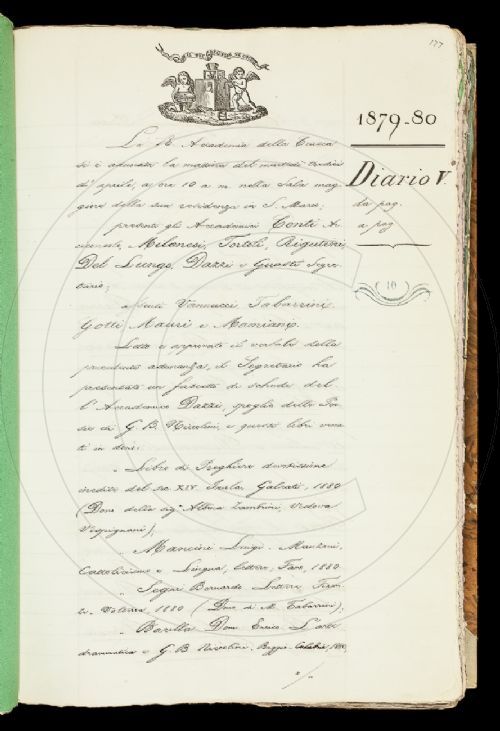 177
1879-80
Diario V.
da pag.
a pag
10
La R. Accademia della Crusca
si è adunata la mattina del martedì tredici
di aprile, a ore 10 a m nella Sala mag-
giore della sua residenza in S. Marco;
presenti gli Accademici Conti Ar-
ciconsolo, Milanesi, Tortoli, Rigutini,
Del Lungo, Dazzi e Guasti Segre-
tario;
assenti Vannucci Tabarrini
Gotti Mauri e Mamiani.
Letto e approvato il verbale della
precedente adunanza, il Segretario ha
presentato un fascetto di schede del-
l'Accademico Dazzi, spoglio delle Poe-
sie di G. B. Niccolini, e questi libri venu-
ti in dono:
" Libro di Preghiere divotissime
inedito del sec. XIV. Galeati, 1880
(Dono della sig.ª Albina Zambrini, Vedova
Vespignani);
" Mancini Luigi - Manzoni,
Cattolicismo e Lingua, Lettere, Fano, 1880
" Segni Bernardo Lettere
Volterra, 1880 (Dono di M. Tabarrini);
" Barilla Don Enrico L'arte
drammatica e G. B. Niccolini. Reggio-Calabria, 1880